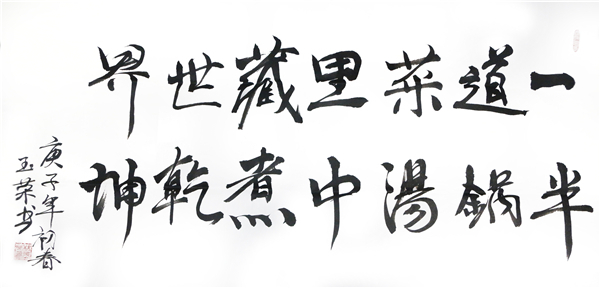 一道菜里藏世界
半鍋湯中煮乾坤
庚子年初春
玉荣书